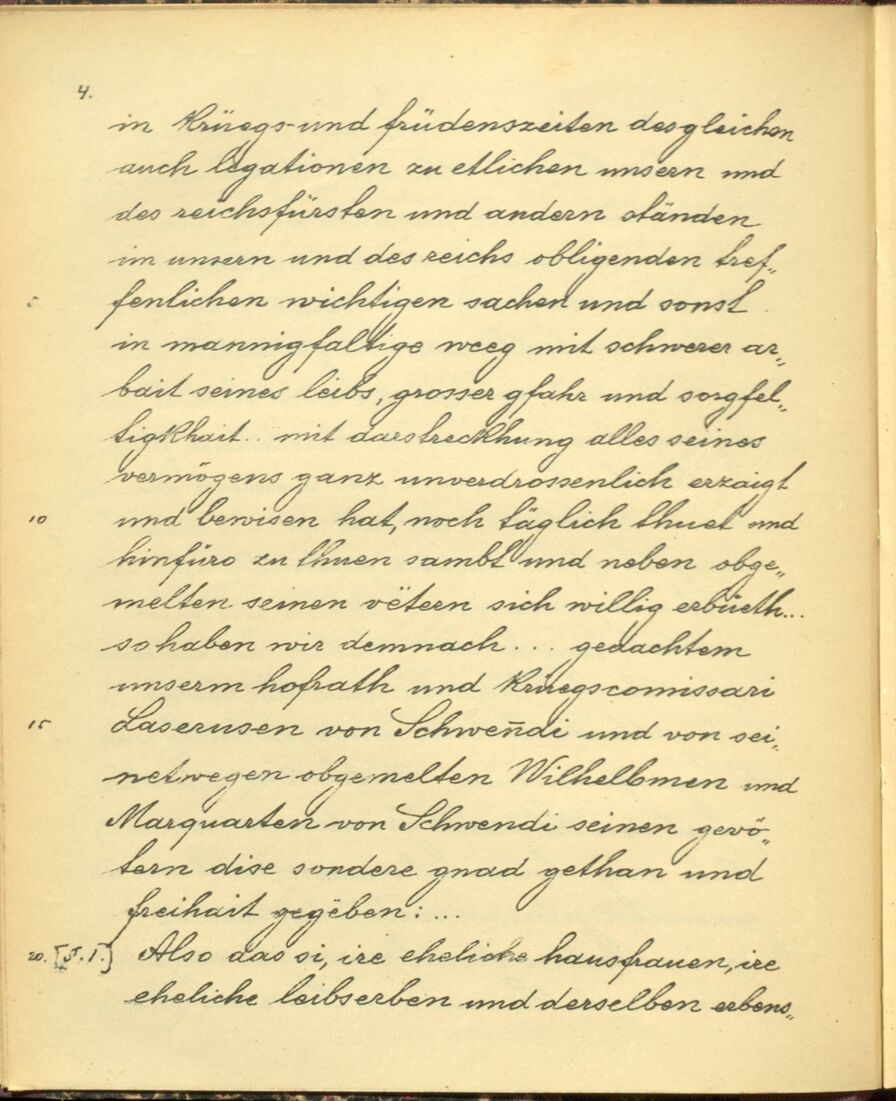 4.
in Krüegs- und früdenszeiten desgleichen
auch legationen zu etlichen unsern und
des reichsfürsten und andern ständen
im unsern und des reichs obligenden tref„
5 fenlichen wichtigen sachen und sonst
in mannigfaltige weeg mit schwerer ar„
bait seines leibs, grosser gfahr und sorgfel„
tigkhait .. mit darstreckhung alles seines
vermögens ganz unverdrossenlich erzaigt
10 und bewisen hat, noch täglich thuet und
hinfüro zu thuen sambt und neben obge„
melten seinen vëtern sich willig erbüeth...
so haben wir demnach ... gedachtem
unserm hofrath und Kruegscomissari
15 Laserusen von Schwen̄di und von sei„
netwegen obgemelten Wilhelbmen und
Marquarten von Schwendi seinen gevö„
tern dise sondere gnad gethan und
freihait gegëben: ...
20. [§. 1.] Also das si, ire eheliche hausfrauen, ire
eheliche leibserben und derselben erbens„